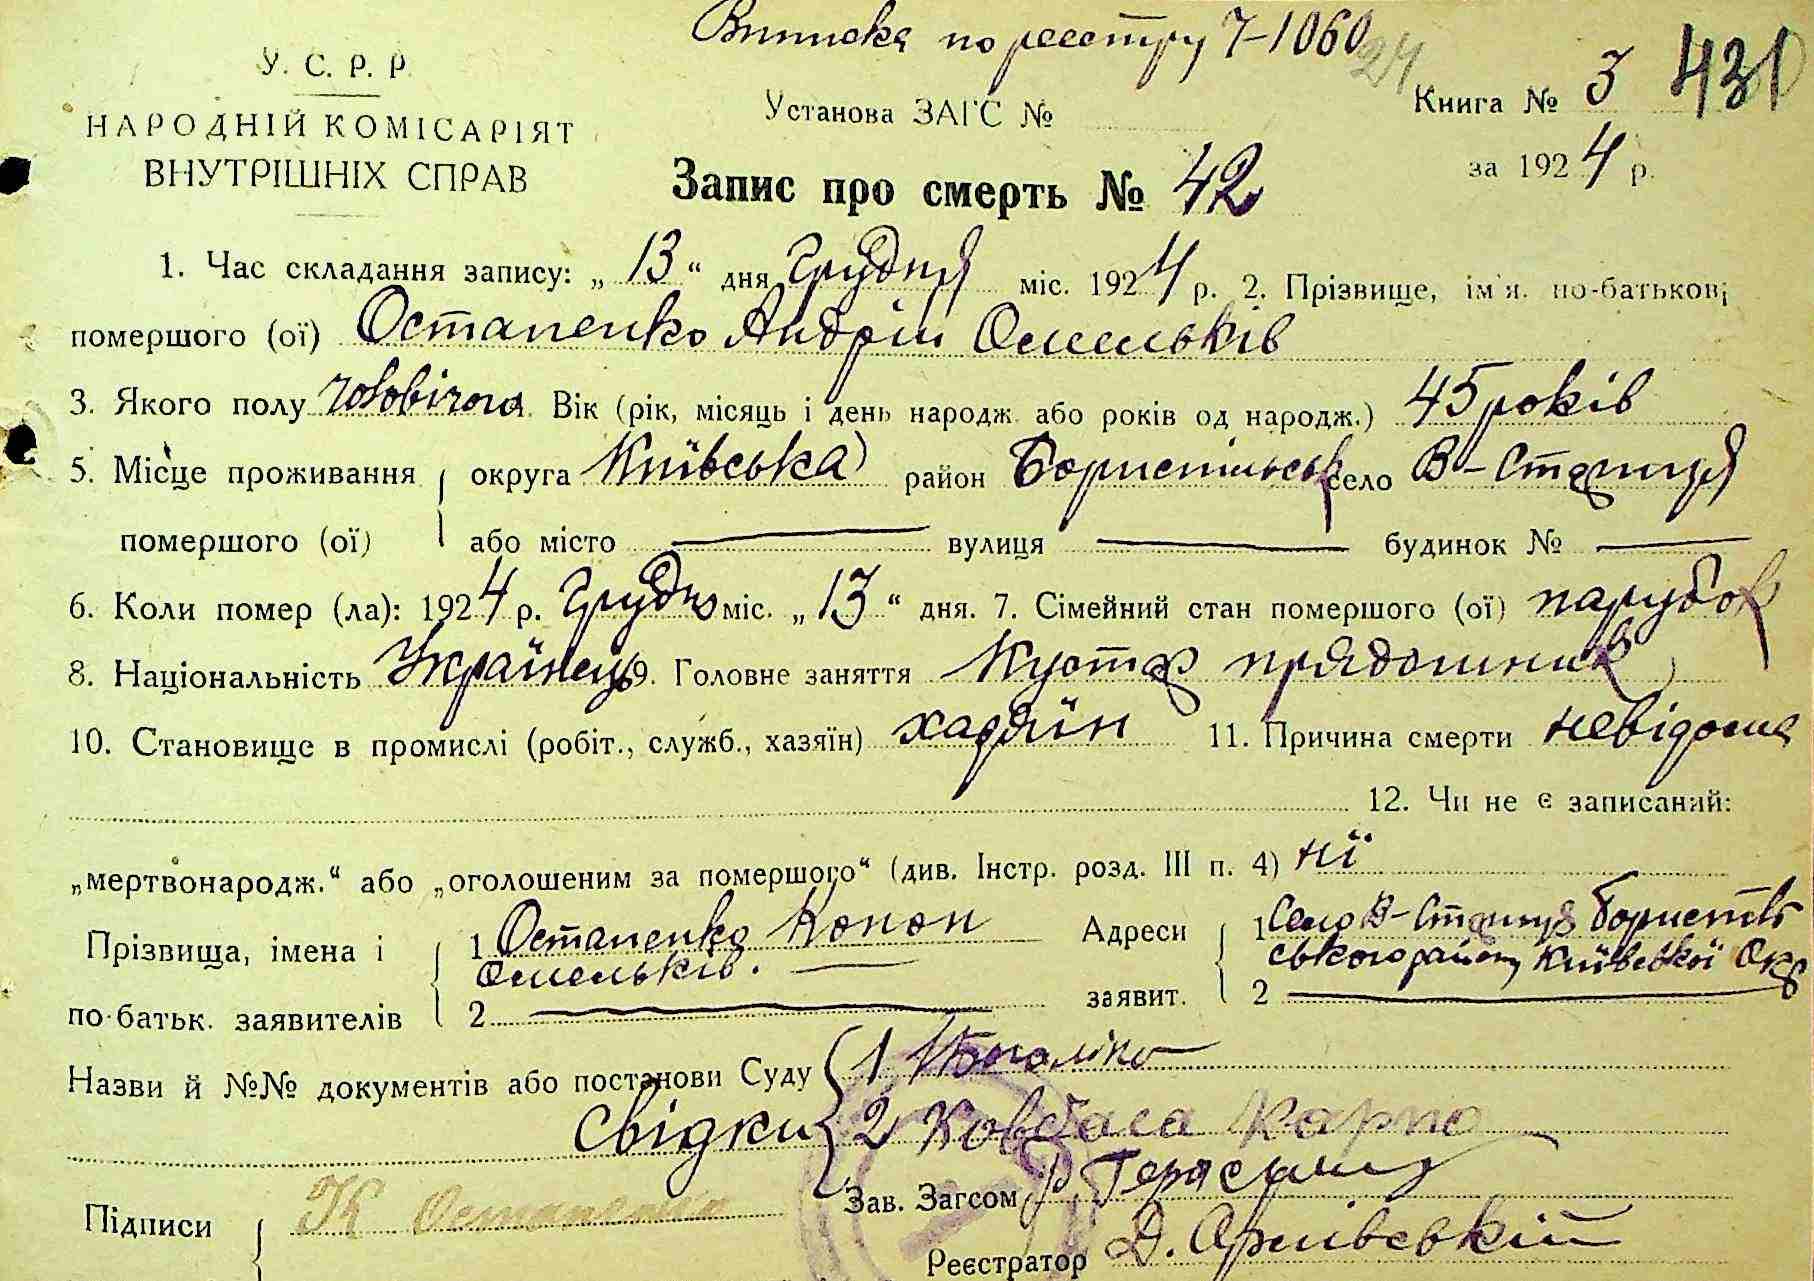 Виписка по реєстру 7-1060
24
431
У. С. Р. Р.
НАРОДНІЙ КОМІСАРІЯТ
ВНУТРІШНІХ СПРАВ
Установа ЗАГС №
Книга № 3
за 1924 р.
Запис про смерть № 42
1. Час складання запису: „13“ дня Грудня міс. 1924 р. 2. Прізвище, ім'я, по-батькові
помершого (ої) Остапенко Андрій Омельків
3. Якого полу чоловічого Вік (рік, місяць і день народж. або років од народж.) 45 років
5. Місце проживання округа Київська район Бориспільськ село В-Стариця
помершого (ої) або місто — вулиця — будинок № —
6. Коли помер (ла): 1924 р. Грудня міс. „13“ дня. 7. Сімейний стан помершого (ої) парубок
8. Національність Українець 9. Головне заняття Кустар прядошник
10. Становище в промислі (робіт., служб., хазяїн) хазяїн 11. Причина смерти невідома
12. Чи не є записаний:
„мертвонародж.“ або „оголошеним за помершого“ (див. Інстр. розд. III п. 4) ні
Прізвища, імена і 1 Остапенко Конон Адреси 1 Село В-Стариця Бориспіль
Омельків. — ського району Київської Окр
по-батьк. заявителів 2 — заявит. 2 —
Назви й №№ документів або постанови Суду 1
Свідки 2 Ковбаса Карпо
Підписи К Остапенко Зав. Загсом Герасим
Реєстратор Д.